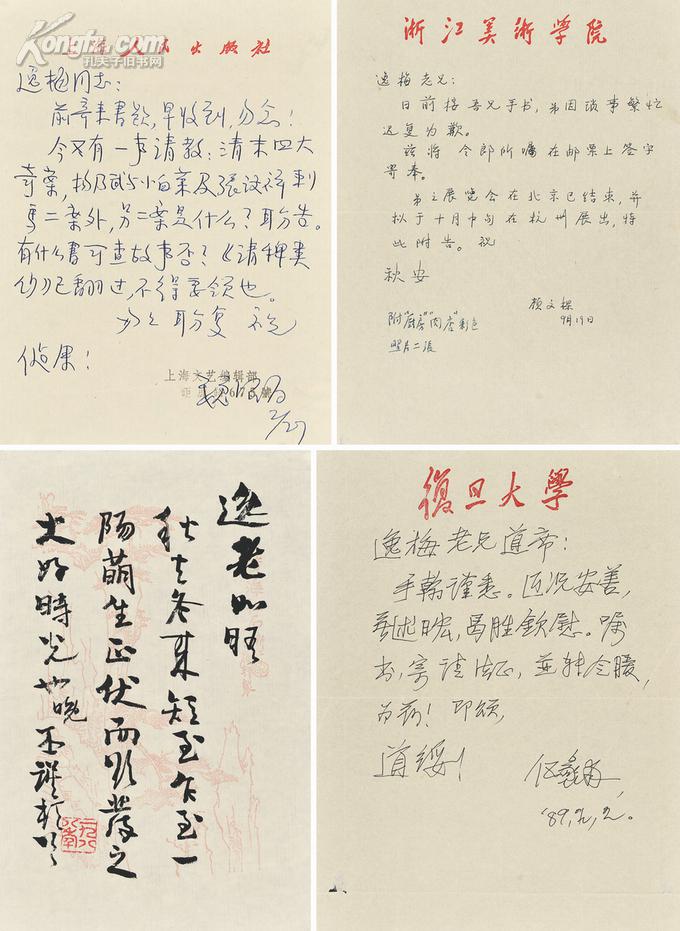 Kongfz.com
孔夫子旧书网
上海人民出版社
逸梅同志:
前寄来书题,早收到,勿念!
今又有一事请教:清末四大
奇案,杨乃武与小白菜及张汶祥刺
马二案外,另二案是什么?盼告。
有什么书可查故事否?《清稗类
钞》已翻过,不得要领也。
盼复
健康!
上海文艺编辑部
浙江美術学院
逸梅老兄:
日前接吾兄手书,弟因琐事繁忙
迟复为歉。
兹将令郎所嘱在邮票上签字
寄奉。
弟之展览会在北京已结束,并
拟于十月中旬在杭州展出,特
此附告。祝
秋安
颜文樑
9月19日
附"厨房""肉店"彩色
照片二张
逸老如晤
秋去冬来短至乍至一
陽萌生正伏而欲發之
大好時光
復旦大学
逸梅老兄道席:
手翰谨悉。近况安善,
著述日宏,曷胜钦慰。嘱
书,寄请法正,並转令媛,
为荷!即颂,
道绥!
伍蠡甫
'89,九,九。